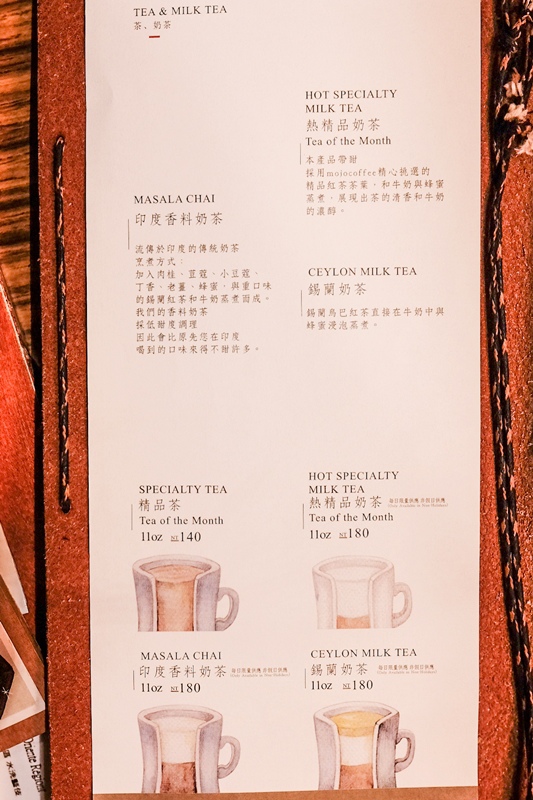 TEA & MILK TEA
茶、奶茶
MASALA CHAI
印度香料奶茶
流傳於印度的傳統奶茶
烹煮方式：
加入肉桂、荳蔻、小豆蔻、
丁香、老薑、蜂蜜，與重口味
的錫蘭紅茶和牛奶蒸煮而成。
我們的香料奶茶
採低甜度調理
因此會比原先您在印度
喝到的口味來得不甜許多。
HOT SPECIALTY
MILK TEA
熱精品奶茶
Tea of the Month
本產品帶甜
採用mojocoffee精心挑選的
精品紅茶茶葉，和牛奶與蜂蜜
蒸煮，展現出茶的清香和牛奶
的濃醇。
CEYLON MILK TEA
錫蘭奶茶
錫蘭烏巴紅茶直接在牛奶中與
蜂蜜浸泡蒸煮。
SPECIALTY TEA
精品茶
Tea of the Month
11oz NT140
HOT SPECIALTY
MILK TEA
熱精品奶茶 每日限量供應 非假日供應
(Only Available in Non-Holidays)
Tea of the Month
11oz NT180
MASALA CHAI
印度香料奶茶 每日限量供應 非假日供應
(Only Available in Non-Holidays)
11oz NT180
CEYLON MILK TEA
錫蘭奶茶 每日限量供應 非假日供應
(Only Available in Non-Holidays)
11oz NT180